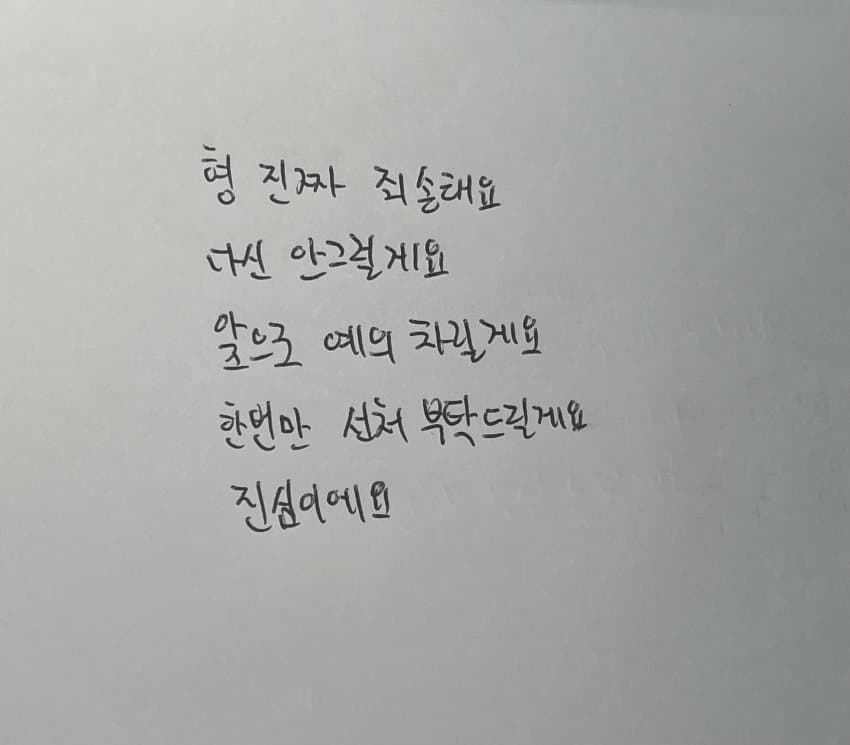 형 진짜 죄송해요
다신 안그럴게요
앞으로 예의 차릴게요
한번만 선처 부탁드릴게요
진심이에요